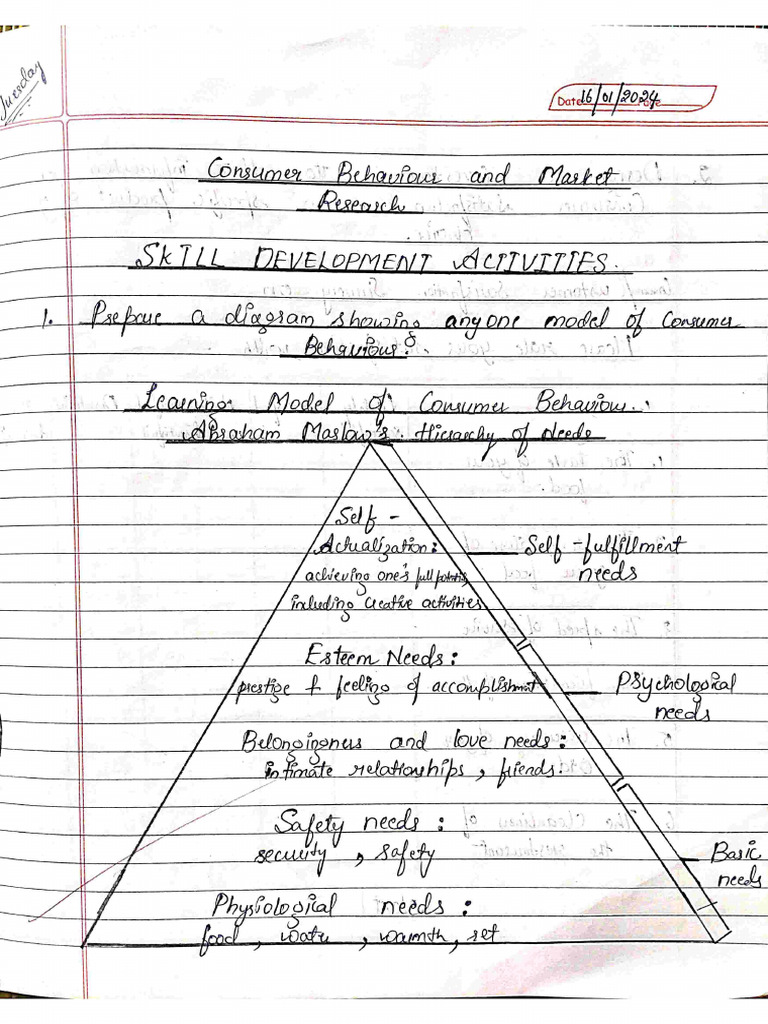 Tuesday
Date 16/01/2024
Consumer Behaviour and Market
Research
SKILL DEVELOPMENT ACTIVITIES.
1. Prepare a diagram showing anyone model of Consumer
Behaviour?
Learning Model of Consumer Behaviour.
Abraham Maslow's Hierarchy of Needs
Self-
Actualization:
achieving one's full
including creative activities
Self-fulfillment
needs
Esteem Needs:
prestige + feeling of accomplishment
Psychological
needs
Belongingness and love needs:
intimate relationships, friends.
Safety needs:
security, safety
Basic
needs
Physiological needs:
food, water, warmth, rest